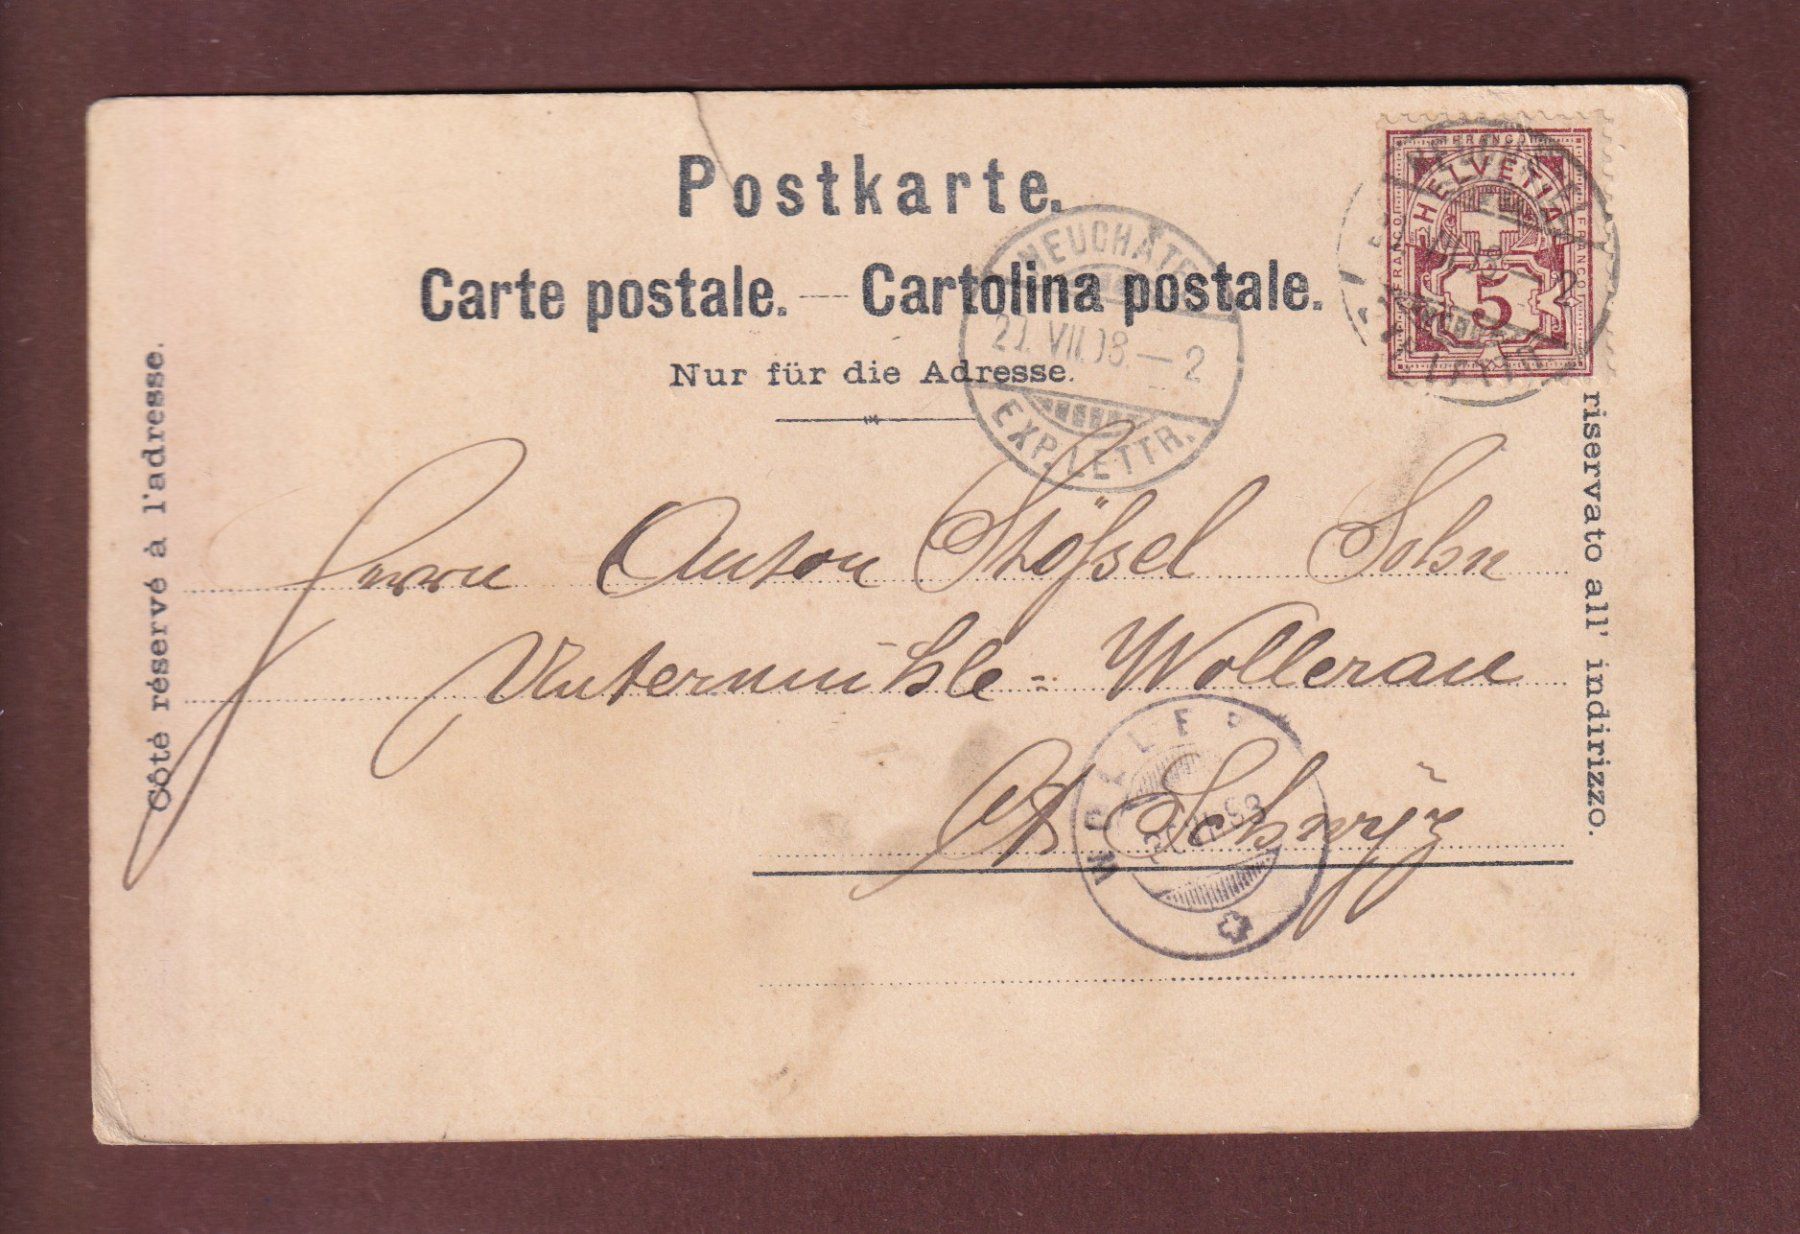 Postkarte.
Carte postale. — Cartolina postale.
Nur für die Adresse.
Côté réservé à l'adresse.
riservato all' indirizzo.
FRANCO
HELVETIA
FRANCO
FRANCO
5
2
NEUCHÂTEL
VII.98 — 2
EXP. LETTR.
Herrn Anton Stößel Sohn
Untermühle - Wollerau
Ct Schwÿz